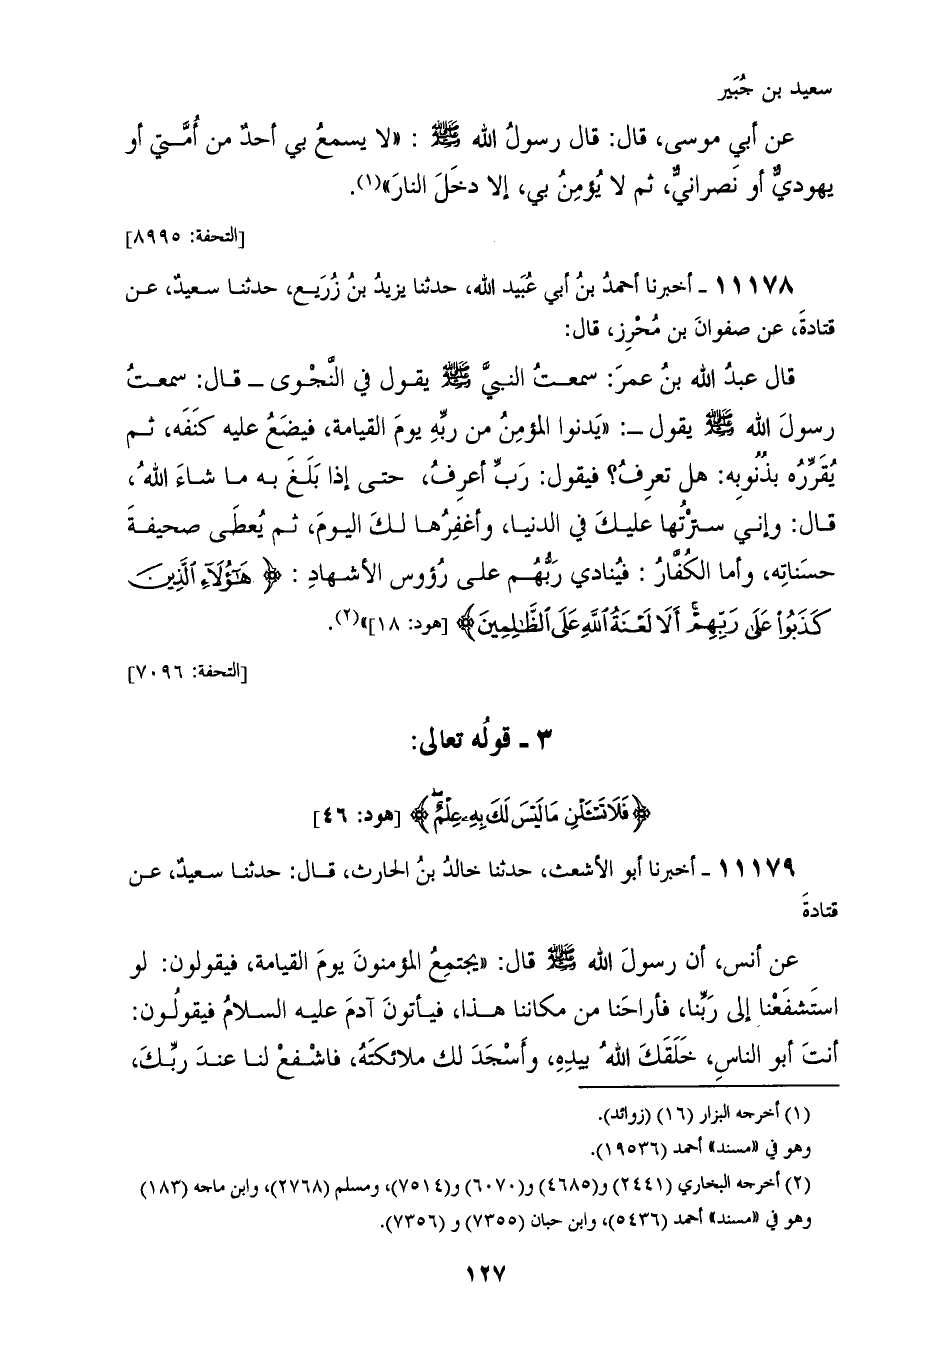 سعيد بن جُبَير
عن أبي موسى، قال: قال رسولُ الله ﷺ : «لا يسمعُ بي أحدٌ من أُمَّتي أو
يهوديٌّ أو نَصرانيٌّ، ثم لا يُؤمِنُ بي، إلا دخَلَ النارَ»(١).
[التحفة: ٨٩٩٥]
١١١٧٨ ـ أخبرنا أحمدُ بنُ أبي عُبَيد الله، حدثنا يزيدُ بنُ زُرَيع، حدثنا سعيدٌ، عن
قتادةَ، عن صفوانَ بن مُحْرِز، قال:
قال عبدُ الله بنُ عمرَ: سمعتُ النبيَّ ﷺ يقول في النَّجْوى ـ قال: سمعتُ
رسولَ الله ﷺ يقول ـ: «يَدنوا المؤمِنُ من ربِّهِ يومَ القيامة، فيضَعُ عليه كنَفَه، ثم
يُقَرِّرُه بذُنُوبِه: هل تعرِفُ؟ فيقول: رَبِّ أعرِفُ، حتى إذا بَلَغَ به ما شاءَ اللهُ،
قال: وإني سترْتُها عليكَ في الدنيا، وأغفِرُها لكَ اليومَ، ثم يُعطَى صحيفةَ
حسَناتِه، وأما الكُفَّارُ : فيُنادي رَبُّهُم على رُؤوس الأشهادِ : ﴿ هَٰٓؤُلَآءِ ٱلَّذِينَ
كَذَبُوا۟ عَلَىٰ رَبِّهِمْ ۚ أَلَا لَعْنَةُ ٱللَّهِ عَلَى ٱلظَّٰلِمِينَ﴾ [هود: ١٨]»(٢).
[التحفة: ٧٠٩٦]
٣ ـ قولُه تعالى:
﴿فَلَا تَسْـَٔلْنِ مَا لَيْسَ لَكَ بِهِۦ عِلْمٌ ۖ﴾ [هود: ٤٦]
١١١٧٩ ـ أخبرنا أبو الأشعث، حدثنا خالدُ بنُ الحارث، قال: حدثنا سعيدٌ، عن
قتادةَ
عن أنس، أن رسولَ الله ﷺ قال: «يجتمِعُ المؤمنونَ يومَ القيامة، فيقولون: لو
استَشفَعْنا إلى رَبِّنا، فأراحَنا من مكاننا هذا، فيأتونَ آدمَ عليه السلامُ فيقولُون:
أنتَ أبو الناسِ، خَلَقَكَ اللهُ بيدِهِ، وأَسْجَدَ لك ملائكتَهُ، فاشْفعْ لنا عندَ ربِّكَ،
(١) أخرجه البزار (١٦) (زوائد).
وهو في «مسند» أحمد (١٩٥٣٦).
(٢) أخرجه البخاري (٢٤٤١) و(٤٦٨٥) و(٦٠٧٠) و(٧٥١٤)، ومسلم (٢٧٦٨)، وابن ماجه (١٨٣)
وهو في «مسند» أحمد (٥٤٣٦)، وابن حبان (٧٣٥٥) و (٧٣٥٦).
١٢٧